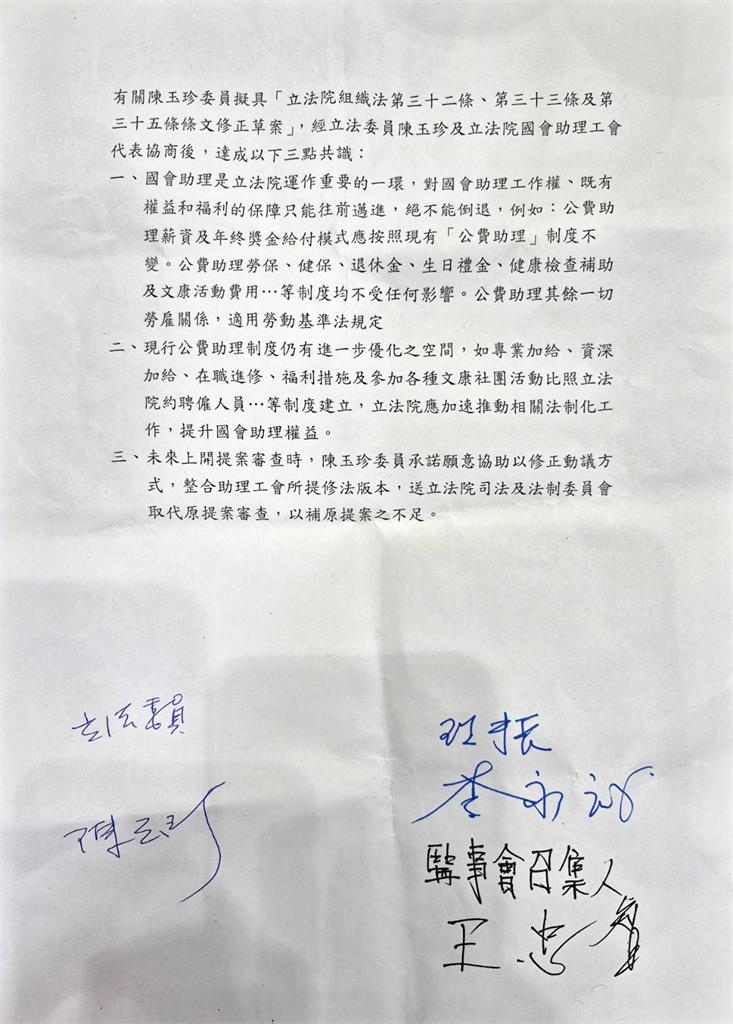 有關陳玉珍委員擬具「立法院組織法第三十二條、第三十三條及第
三十五條條文修正草案」，經立法委員陳玉珍及立法院國會助理工會
代表協商後，達成以下三點共識：
一、國會助理是立法院運作重要的一環，對國會助理工作權、既有
權益和福利的保障只能往前邁進，絕不能倒退，例如：公費助
理薪資及年終獎金給付模式應按照現有「公費助理」制度不
變。公費助理勞保、健保、退休金、生日禮金、健康檢查補助
及文康活動費用…等制度均不受任何影響。公費助理其餘一切
勞雇關係，適用勞動基準法規定
二、現行公費助理制度仍有進一步優化之空間，如專業加給、資深
加給、在職進修、福利措施及參加各種文康社團活動比照立法
院約聘僱人員…等制度建立，立法院應加速推動相關法制化工
作，提升國會助理權益。
三、未來上開提案審查時，陳玉珍委員承諾願意協助以修正動議方
式，整合助理工會所提修法版本，送立法院司法及法制委員會
取代原提案審查，以補原提案之不足。
陳玉珍
李永
事會召集人
王忠